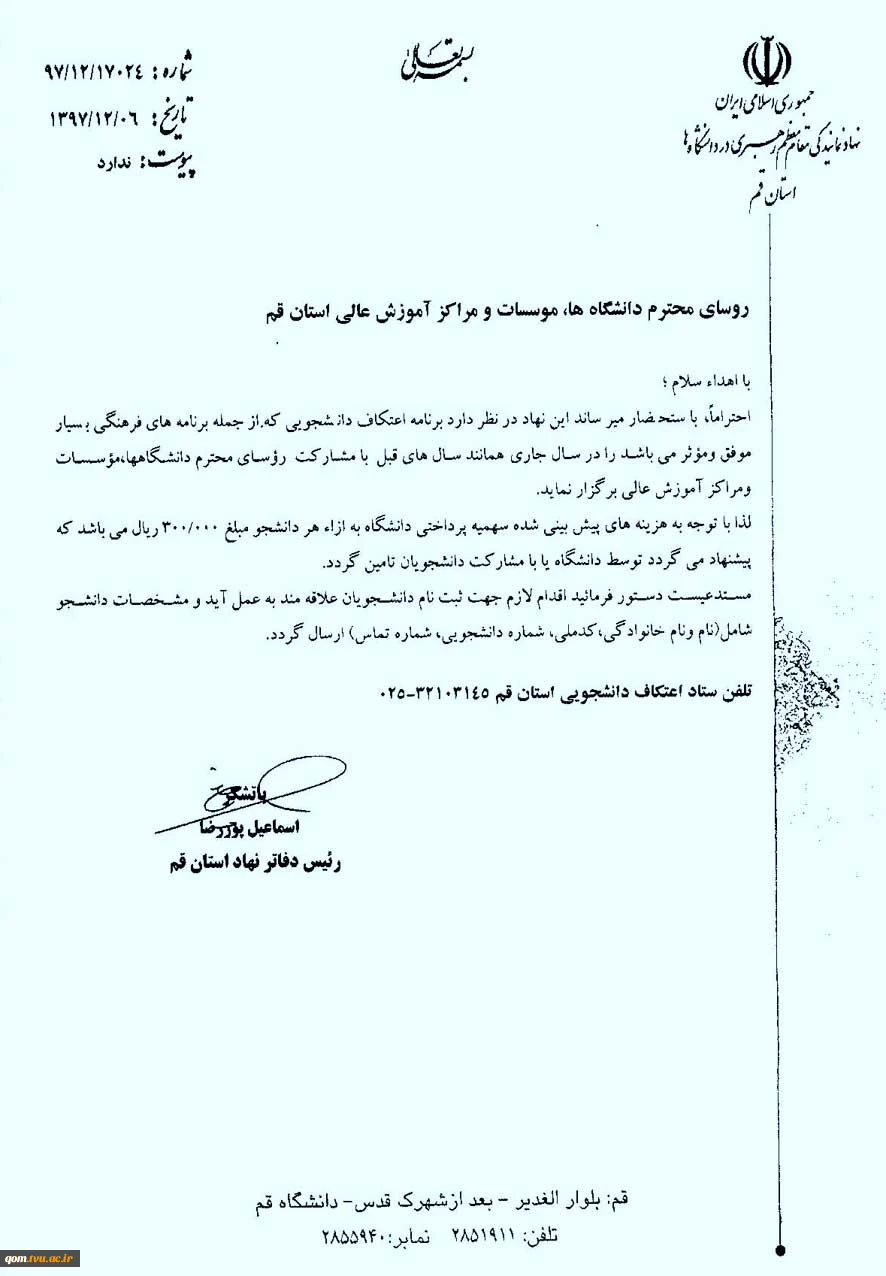 بسمه تعالی
جمهوری اسلامی ایران
نهاد نمایندگی مقام معظم رهبری در دانشگاه ها
استان قم
شماره: ۹۷/۱۲/۱۷۰۲٤
تاریخ: ۱۳۹۷/۱۲/۰٦
پیوست: ندارد
روسای محترم دانشگاه ها، موسسات و مراکز آموزش عالی استان قم
با اهداء سلام ؛
احتراماً، با ستحضار میر ساند این نهاد در نظر دارد برنامه اعتکاف دانشجویی که.از جمله برنامه های فرهنگی بسیار
موفق ومؤثر می باشد را در سال جاری همانند سال های قبل با مشارکت رؤسای محترم دانشگاهها،مؤسسات
ومراکز آموزش عالی برگزار نماید.
لذا با توجه به هزینه های پیش بینی شده سهمیه پرداختی دانشگاه به ازاء هر دانشجو مبلغ ۳۰۰/۰۰۰ ریال می باشد که
پیشنهاد می گردد توسط دانشگاه یا با مشارکت دانشجویان تامین گردد.
مستدعیست دستور فرمائید اقدام لازم جهت ثبت نام دانشجویان علاقه مند به عمل آید و مشخصات دانشجو
شامل(نام ونام خانوادگی،کدملی، شماره دانشجویی، شماره تماس) ارسال گردد.
تلفن ستاد اعتکاف دانشجویی استان قم ۳۲۱۰۳۱٤۵-۰۲۵
باتشکر
اسماعیل پوررضا
رئیس دفاتر نهاد استان قم
قم: بلوار الغدیر – بعد ازشهرک قدس- دانشگاه قم
تلفن: ۲۸۵۱۹۱۱ نمابر:۲۸۵۵۹۴۰
qom.tvu.ac.ir